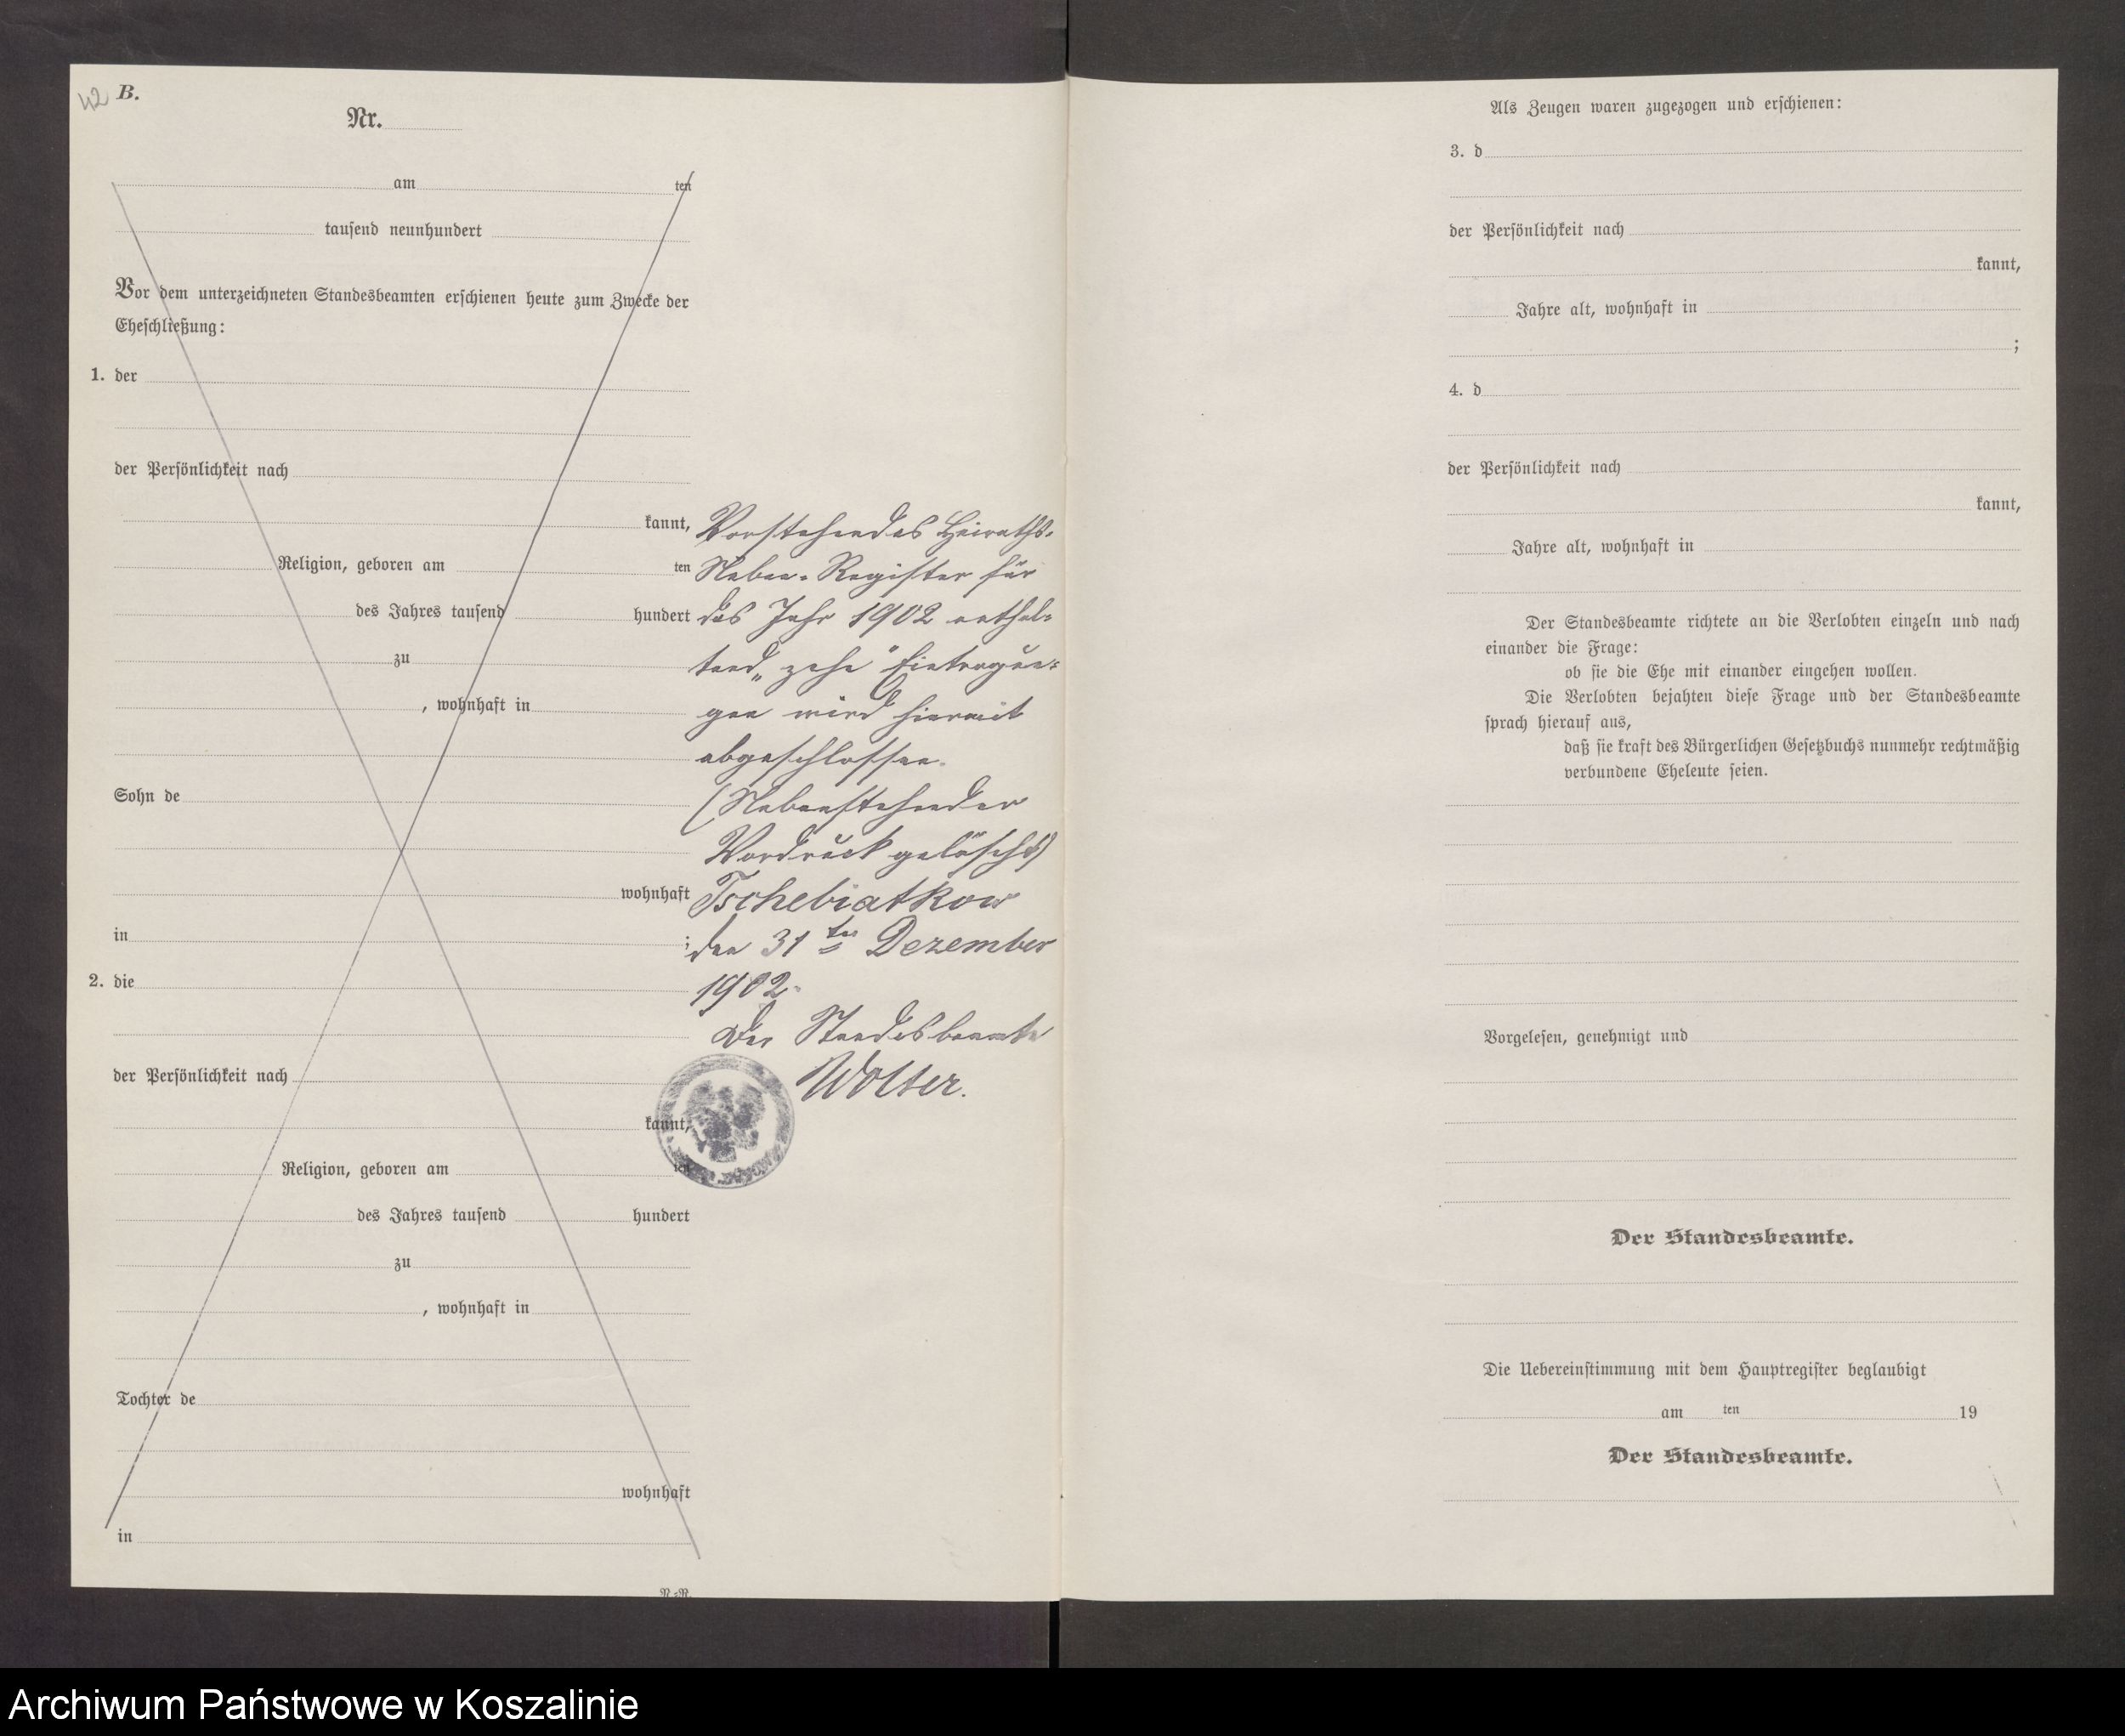 42 B.
Nr.
am ten
tausend neunhundert
Vor dem unterzeichneten Standesbeamten erschienen heute zum Zwecke der
Eheschließung:
1. der
der Persönlichkeit nach
kannt,
Religion, geboren am ten
des Jahres tausend hundert
zu
, wohnhaft in
Sohn de
wohnhaft
in ;
2. die
der Persönlichkeit nach
kannt,
Religion, geboren am ten
des Jahres tausend hundert
zu
, wohnhaft in
Tochter de
wohnhaft
in
Vorstehendes Heiraths-
Neben-Register für
das Jahr 1902 enthal-
tend „zehn" Eintragun-
gen wird hiermit
abgeschlossen.
(Nebenstehender
Vordruck gelöscht)
Tschebiatkow
den 31ten Dezember
1902.
Der Standesbeamte
Wolter.
Als Zeugen waren zugezogen und erschienen:
3. d
der Persönlichkeit nach
kannt,
Jahre alt, wohnhaft in
;
4. d
der Persönlichkeit nach
kannt,
Jahre alt, wohnhaft in
Der Standesbeamte richtete an die Verlobten einzeln und nach
einander die Frage:
ob sie die Ehe mit einander eingehen wollen.
Die Verlobten bejahten diese Frage und der Standesbeamte
sprach hierauf aus,
daß sie kraft des Bürgerlichen Gesetzbuchs nunmehr rechtmäßig
verbundene Eheleute seien.
Vorgelesen, genehmigt und
Der Standesbeamte.
Die Uebereinstimmung mit dem Hauptregister beglaubigt
am ten 19
Der Standesbeamte.
Archiwum Państwowe w Koszalinie